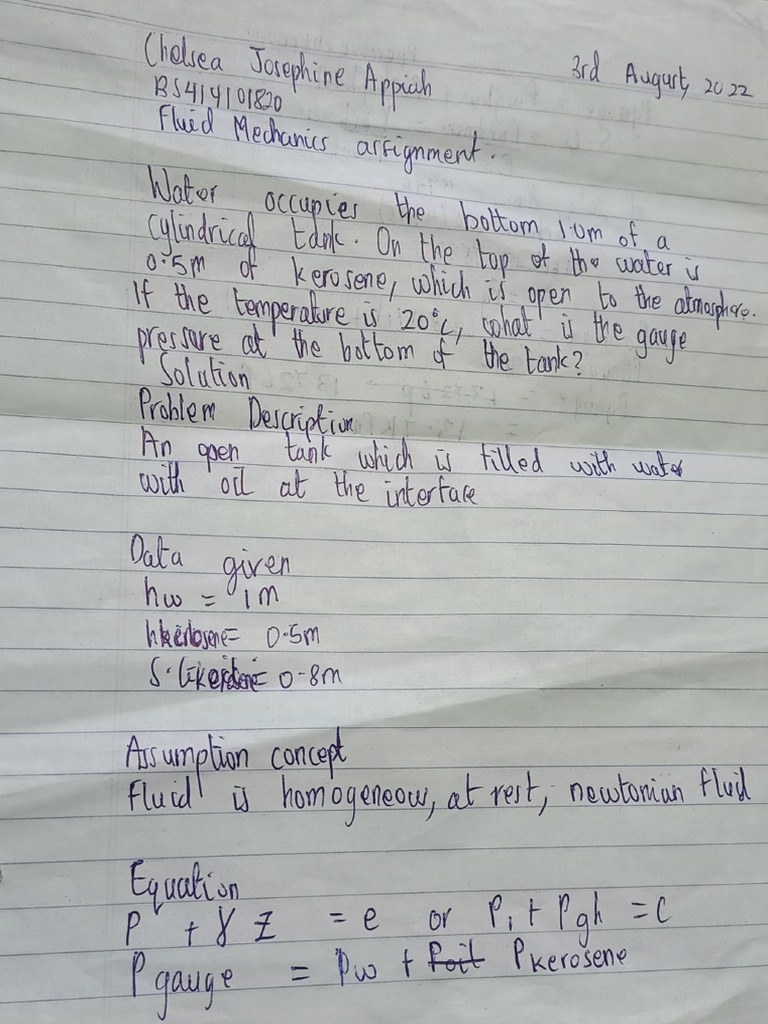 Chelsea Josephine Appiah
3rd August, 2022
BS414101820
Fluid Mechanics assignment.
Water occupies the bottom 1.0m of a
cylindrical tank. On the top of the water is
0.5m of kerosene, which is open to the atmosphere.
If the temperature is 20°C, what is the gauge
pressure at the bottom of the tank?
Solution
Problem Description
An open tank which is filled with water
with oil at the interface
Data given
hw = 1m
hkerosene= 0.5m
S.Gkerosene= 0.8m
Assumption concept
Fluid is homogeneous, at rest, newtonian fluid
Equation
P + γ Z = c or P₁ + Pgh = C
P gauge = Pw + Poil Pkerosene